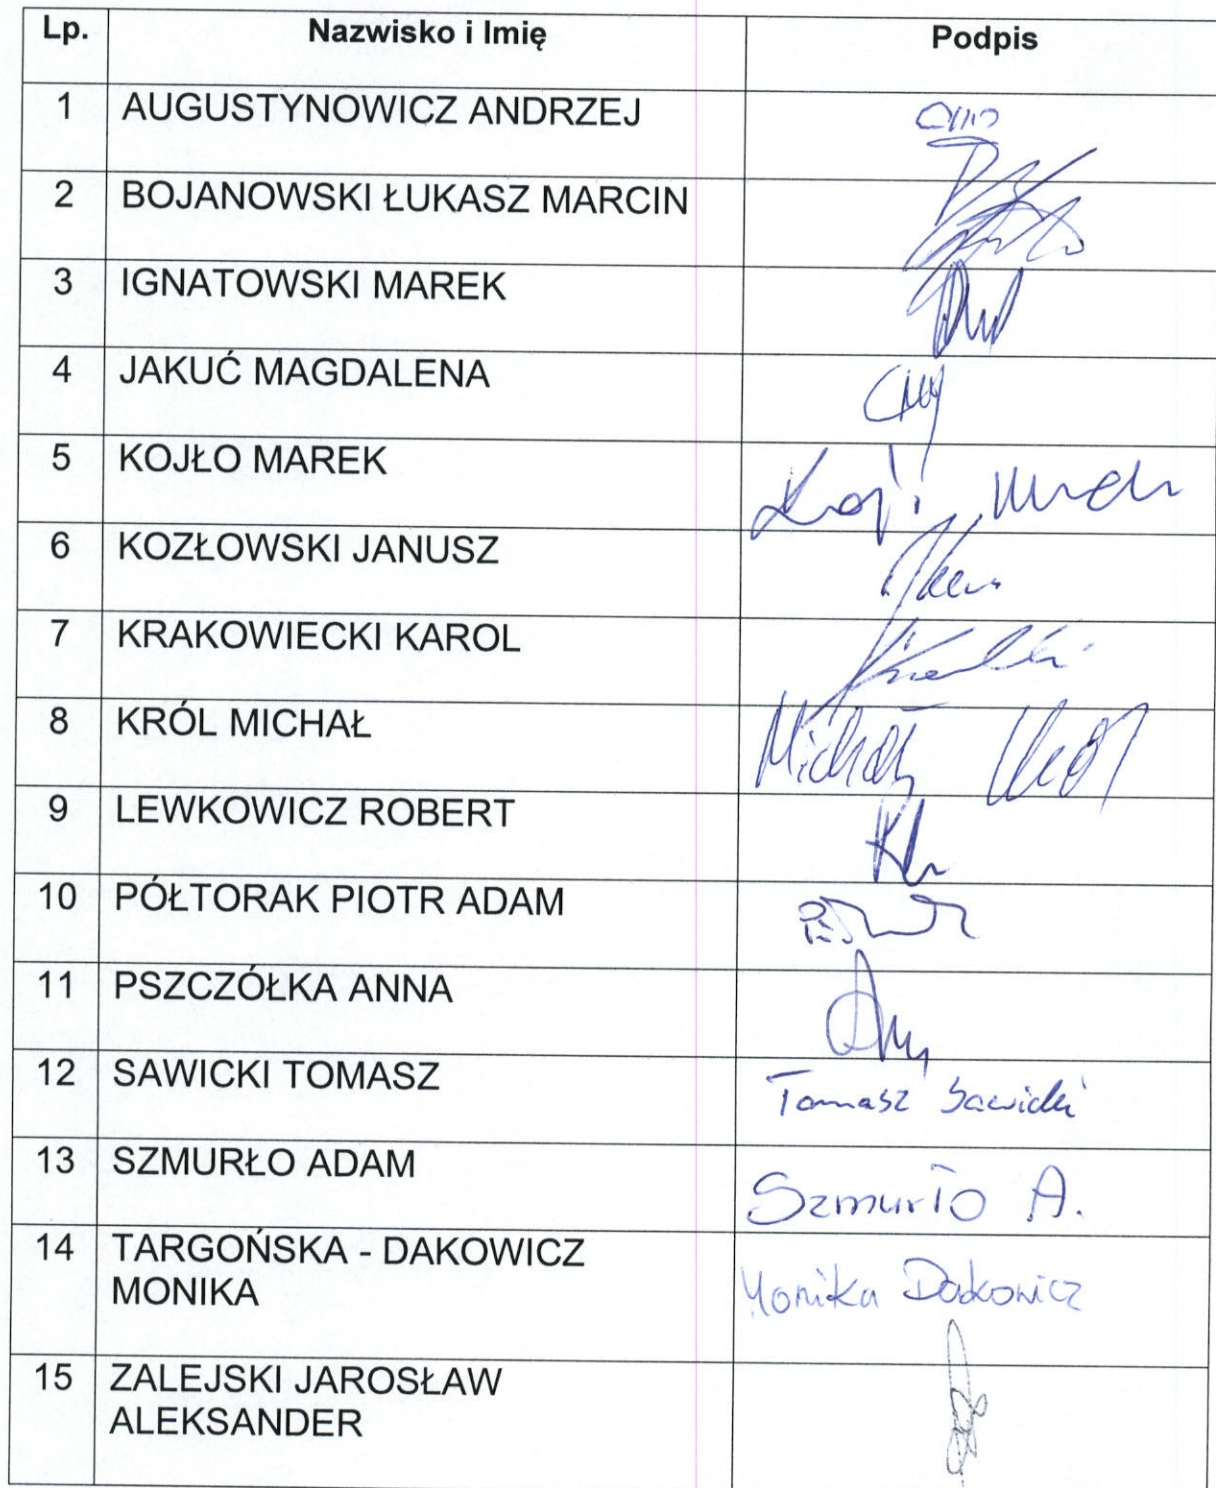 Lp. Nazwisko i Imię Podpis
1 AUGUSTYNOWICZ ANDRZEJ
2 BOJANOWSKI ŁUKASZ MARCIN
3 IGNATOWSKI MAREK
4 JAKUĆ MAGDALENA
5 KOJŁO MAREK
6 KOZŁOWSKI JANUSZ
7 KRAKOWIECKI KAROL
8 KRÓL MICHAŁ Michał Król
9 LEWKOWICZ ROBERT
10 PÓŁTORAK PIOTR ADAM
11 PSZCZÓŁKA ANNA
12 SAWICKI TOMASZ Tomasz Sawicki
13 SZMURŁO ADAM Szmurło A.
14 TARGOŃSKA - DAKOWICZ
MONIKA Monika Dakowicz
15 ZALEJSKI JAROSŁAW
ALEKSANDER